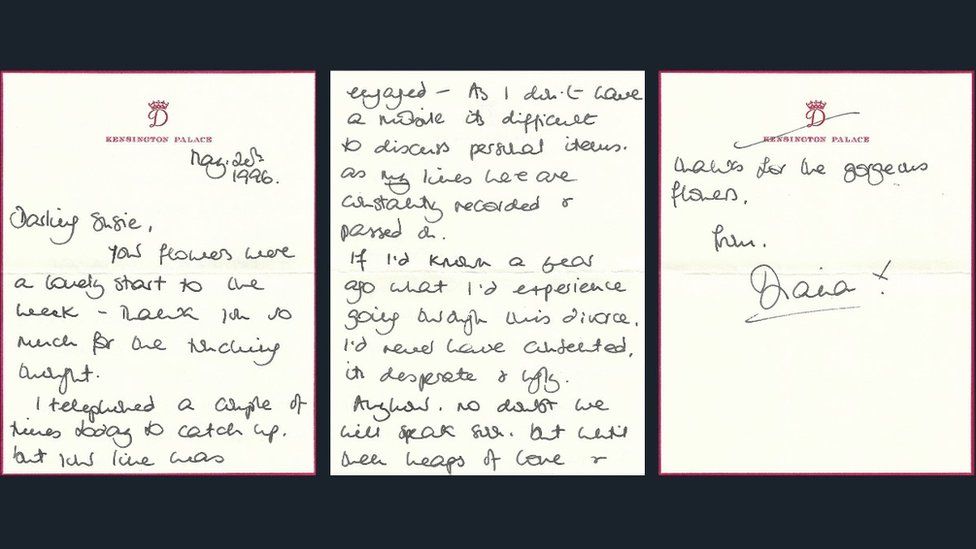 D
KENSINGTON PALACE
May. 20th
1996.
Darling Susie,
Your flowers were
a lovely start to the
week - thank you so
much for the touching
thought.
I telephoned a couple of
times today to catch up.
but your line was
engaged - As I don't have
a mobile its difficult
to discuss personal items.
as my lines here are
constantly recorded &
passed on.
If I'd known a year
ago what I'd experience
going through this divorce.
I'd never have consented.
its desperate & ugly.
Anyhow. no doubt we
will speak soon. but until
then heaps of love &
D
KENSINGTON PALACE
thanks for the gorgeous
flowers.
from.
Diana x